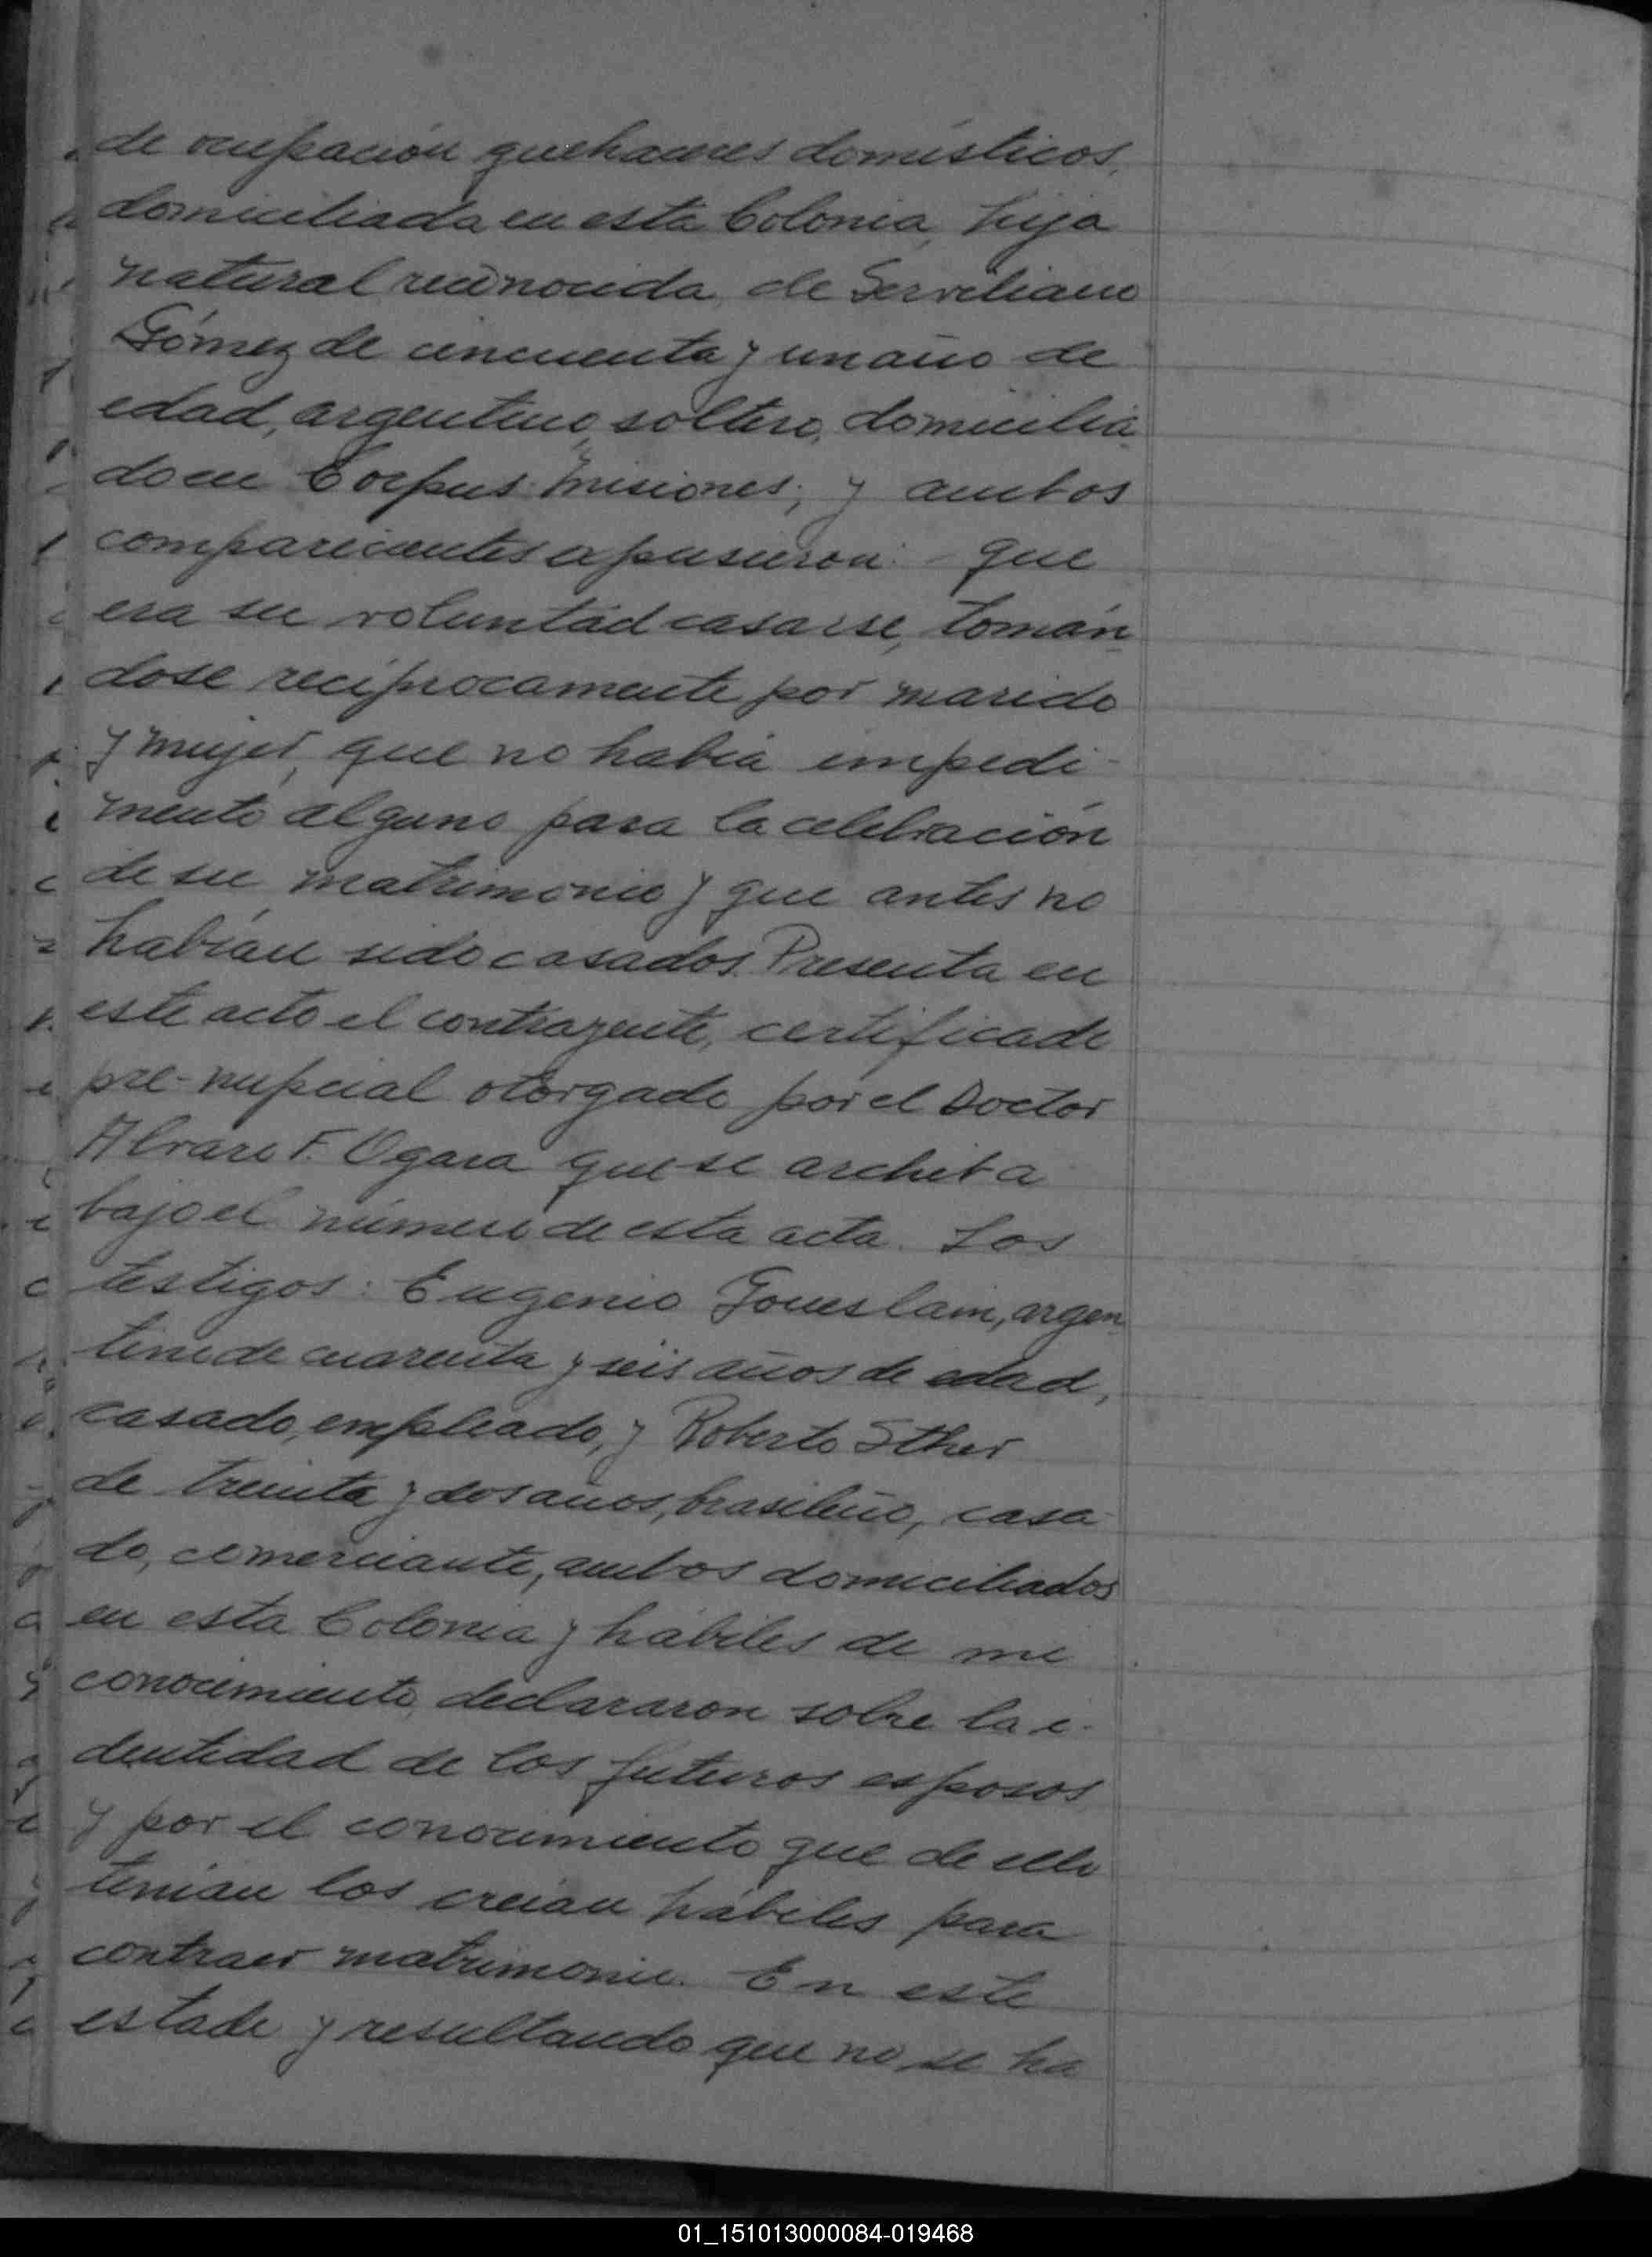 de ocupación quehaceres domésticos,
domiciliada en esta Colonia, hija
natural reconocida, de Serviliano
Gómez de cincuenta y un año de
edad, argentino, soltero, domicilia
do en Corpus Misiones; y ambos
comparecientes expusieron: - que
era su voluntad casarse, tomán
dose recíprocamente por marido
y mujer, que no había impedi-
mento alguno para la celebración
de su matrimonio y que antes no
habían sido casados. Presenta en
este acto el contrayente, certificado
pre-nupcial otorgado por el Doctor
Alvaro F. Ogara que se archiva
bajo el número de esta acta. Los
testigos: Eugenio argen
tino de cuarenta y seis años de edad,
casado, empleado, y Roberto Sther
de treinta y dos años, brasileño, casa
do, comerciante, ambos domiciliados
en esta Colonia y hábiles de mi
conocimiento, declararon sobre la i-
dentidad de los futuros esposos
y por el conocimiento que de ello
tenían los creían hábiles para
contraer matrimonio. En este
estado y resultando que no se ha
01_151013000084-019468